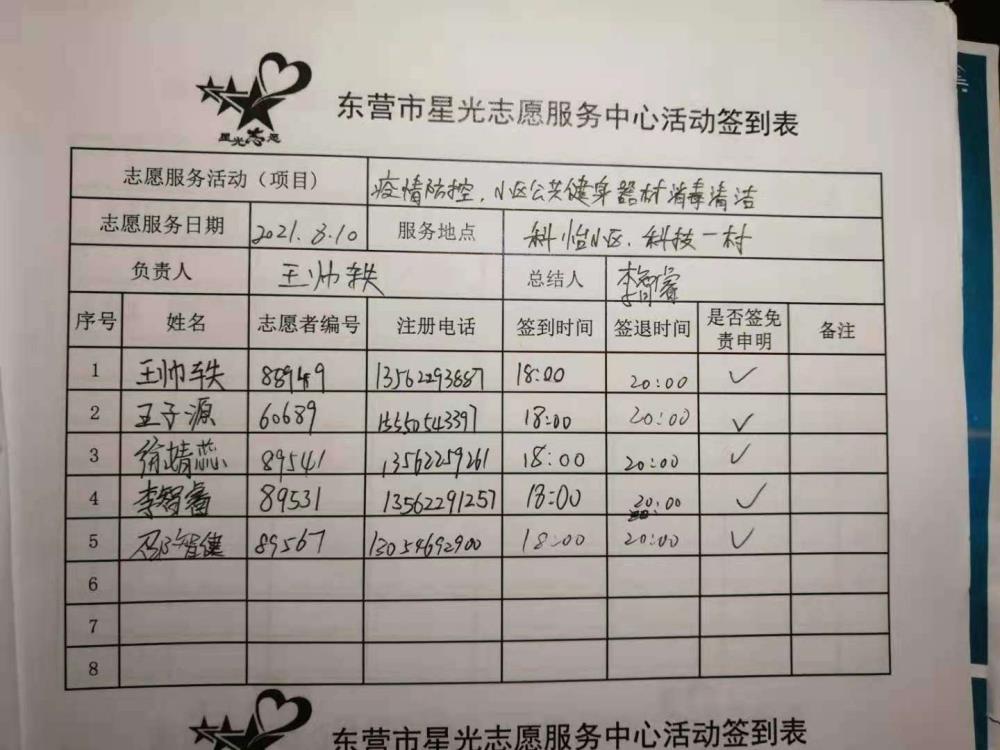 星光志愿
东营市星光志愿服务中心活动签到表
志愿服务活动（项目） 疫情防控，小区公共健身器材消毒清洁
志愿服务日期 2021.8.10 服务地点 科怡小区、科技一村
负责人 王帅轶 总结人 李智睿
序号 姓名 志愿者编号 注册电话 签到时间 签退时间 是否签免责申明 备注
1 王帅轶 13562293887 18:00 20:00 ✓
2 王子源 60689 15550543397 18:00 20:00 ✓
3 徐婧蕊 89541 13562259261 18:00 20:00 ✓
4 李智睿 89531 13562291257 18:00 20:00 ✓
5 智健 89567 13054692900 18:00 20:00 ✓
6
7
8
东营市星光志愿服务中心活动签到表